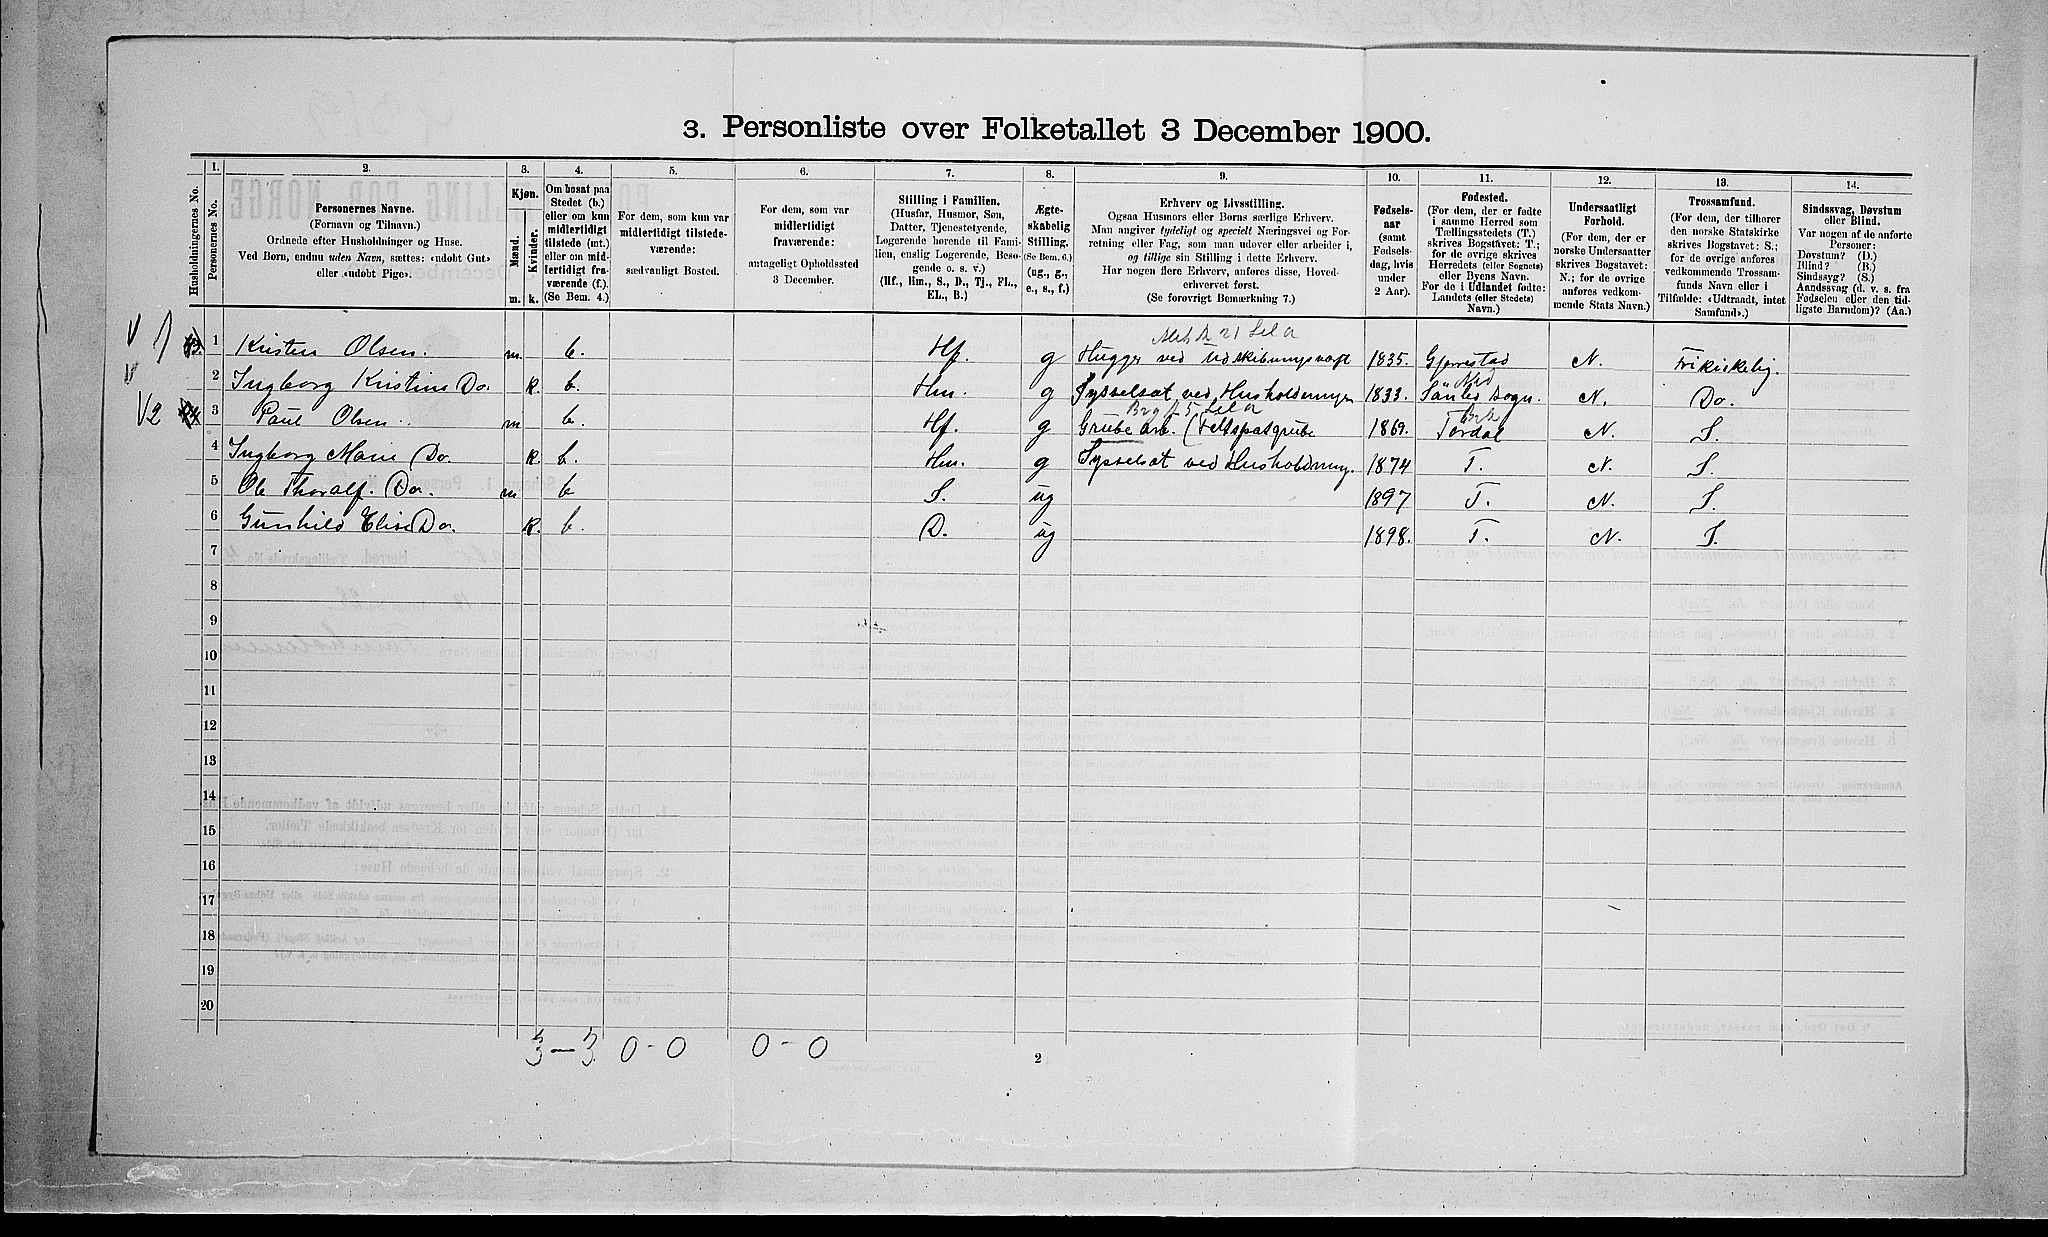 3. Personliste over Folketallet 3 December 1900.
Husholdningernes No.
1.
Personernes No.
2.
Personernes Navne.
(Fornavn og Tilnavn.)
Ordnede efter Husholdninger og Huse.
Ved Børn, endnu uden Navn, sættes: «udøbt Gut»
eller «udøbt Pige».
3.
Kjøn.
Mænd.
Kvinder.
m. k.
4.
Om bosat paa
Stedet (b.)
eller om kun
midlertidigt
tilstede (mt.)
eller om mid-
lertidigt fra-
værende (f.).
(Se Bem. 4.)
5.
For dem, som kun var
midlertidigt tilstede-
værende:
sædvanligt Bosted.
6.
For dem, som var
midlertidigt
fraværende:
antageligt Opholdssted
3 December.
7.
Stilling i Familien.
(Husfar, Husmor, Søn,
Datter, Tjenestetyende,
Logerende hørende til Fami-
lien, enslig Logerende, Besø-
gende o. s. v.)
(Hf., Hm., S., D., Tj., FL.,
EL., B.)
8.
Ægte-
skabelig
Stilling.
(Se Bem. 6.)
(ug., g.,
e., s., f.)
9.
Erhverv og Livsstilling.
Ogsaa Husmors eller Børns særlige Erhverv.
Man angiver tydeligt og specielt Næringsvei og For-
retning eller Fag, som man udøver eller arbeider i,
og tillige sin Stilling i dette Erhverv.
Har nogen flere Erhverv, anføres disse, Hoved-
erhvervet først.
(Se forøvrigt Bemærkning 7.)
10.
Fødsels-
aar
(samt
Fødsels-
dag, hvis
under
2 Aar).
11.
Fødested.
(For dem, der er fødte
i samme Herred som
Tællingsstedets (T.)
skrives Bogstavet: T.;
for de øvrige skrives
Herredets (eller Sognets)
eller Byens Navn.
For de i Udlandet fødte:
Landets (eller Stedets)
Navn.)
12.
Undersaatligt
Forhold.
(For dem, der er
norske Undersaatter
skrives Bogstavet:
N.; for de øvrige
anføres vedkom-
mende Stats Navn.)
13.
Trossamfund.
(For dem, der tilhører
den norske Statskirke
skrives Bogstavet: S.;
for de øvrige anføres
vedkommende Trossam-
funds Navn eller i
Tilfælde: «Udtraadt, intet
Samfund».)
14.
Sindssvag, Døvstum
eller Blind.
Var nogen af de anførte
Personer:
Døvstum? (D.)
Blind? (B.)
Sindssyg? (S.)
Aandssvag (d. v. s. fra
Fødselen eller den tid-
ligste Barndom)? (Aa.)
V 1 1 Kristen Olsen. m. b. Hf. g Hugger ved 1835. Gjerrestad N. Frikirkelig.
V 2 Ingborg Kristine Do. k. b. Hm. g Sysselsat ved Husholdningen 1833. N. Do.
V2 3 Paul Olsen m b. Hf. g Grube arb. (Feltspatgrube 1869. Tørdal N. S.
4 Ingborg Marie Do. k. b. Hm. g Sysselsat ved Husholdning. 1874 T. N. S.
5 Ole Thoralf. Do. m b S. ug 1897 T. N. S.
6 Gunhild Elise Do. k. b. D. ug 1898. T. N. S.
7
8
9
10
11
12
13
14
15
16
17
18
19
20
3–3 0-0 0-0
2